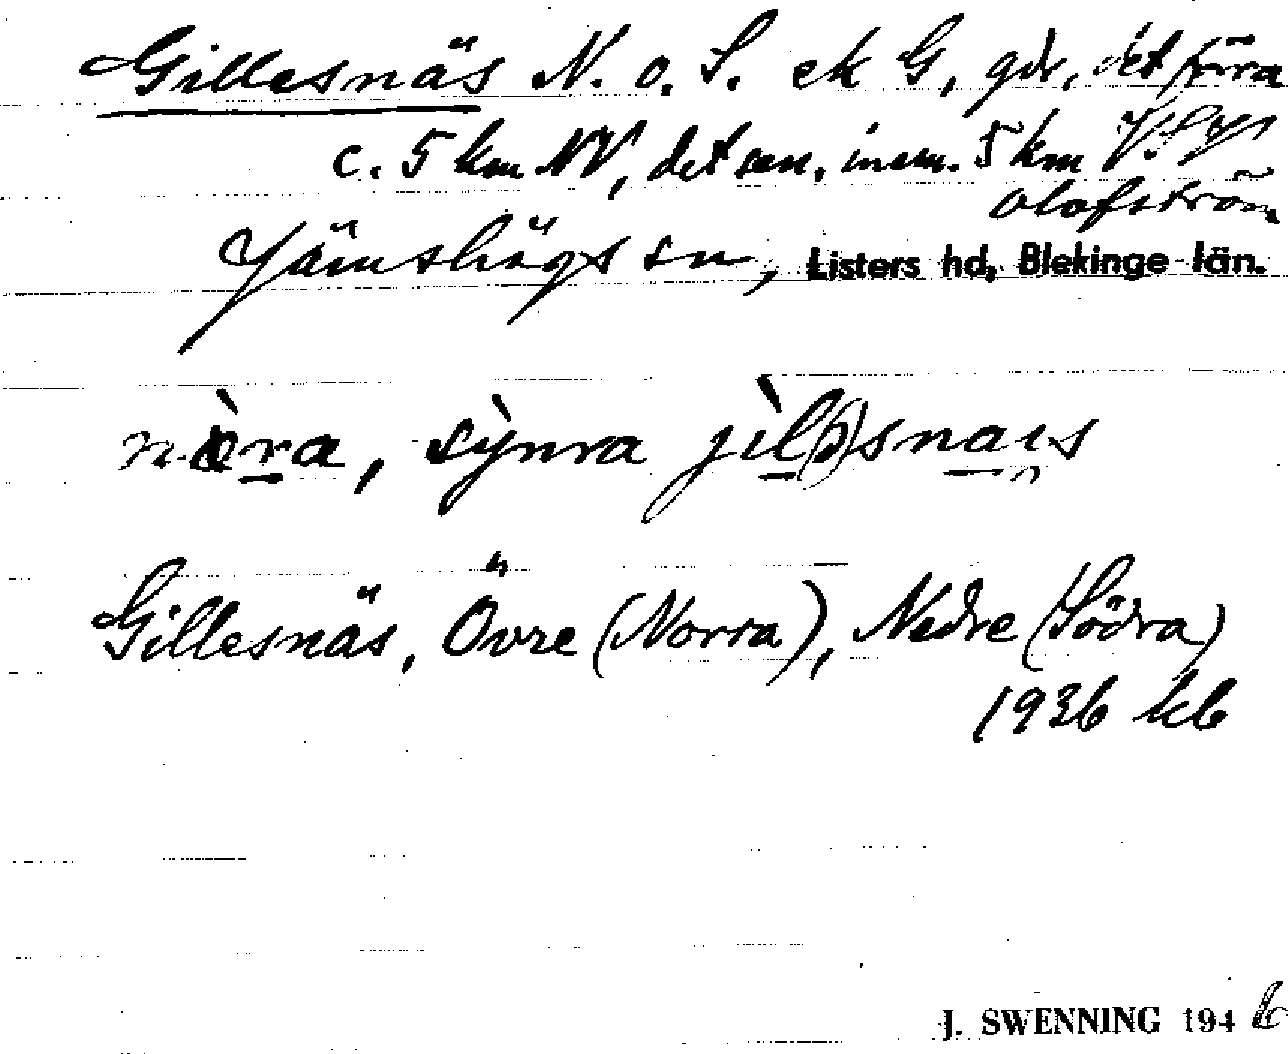 Gillesnäs N. o. S. ek G, gdr, det förra
c. 5 km NV, det sen. insm. 5 km VSV
Olofström
Jämshögs sn, Listers hd, Blekinge län.
nɔ̀ra, sỳnra jìl(ə)snaɪs
Gillesnäs, Övre (Norra), Nedre (Södra)
1936 kb
J. SWENNING 1946